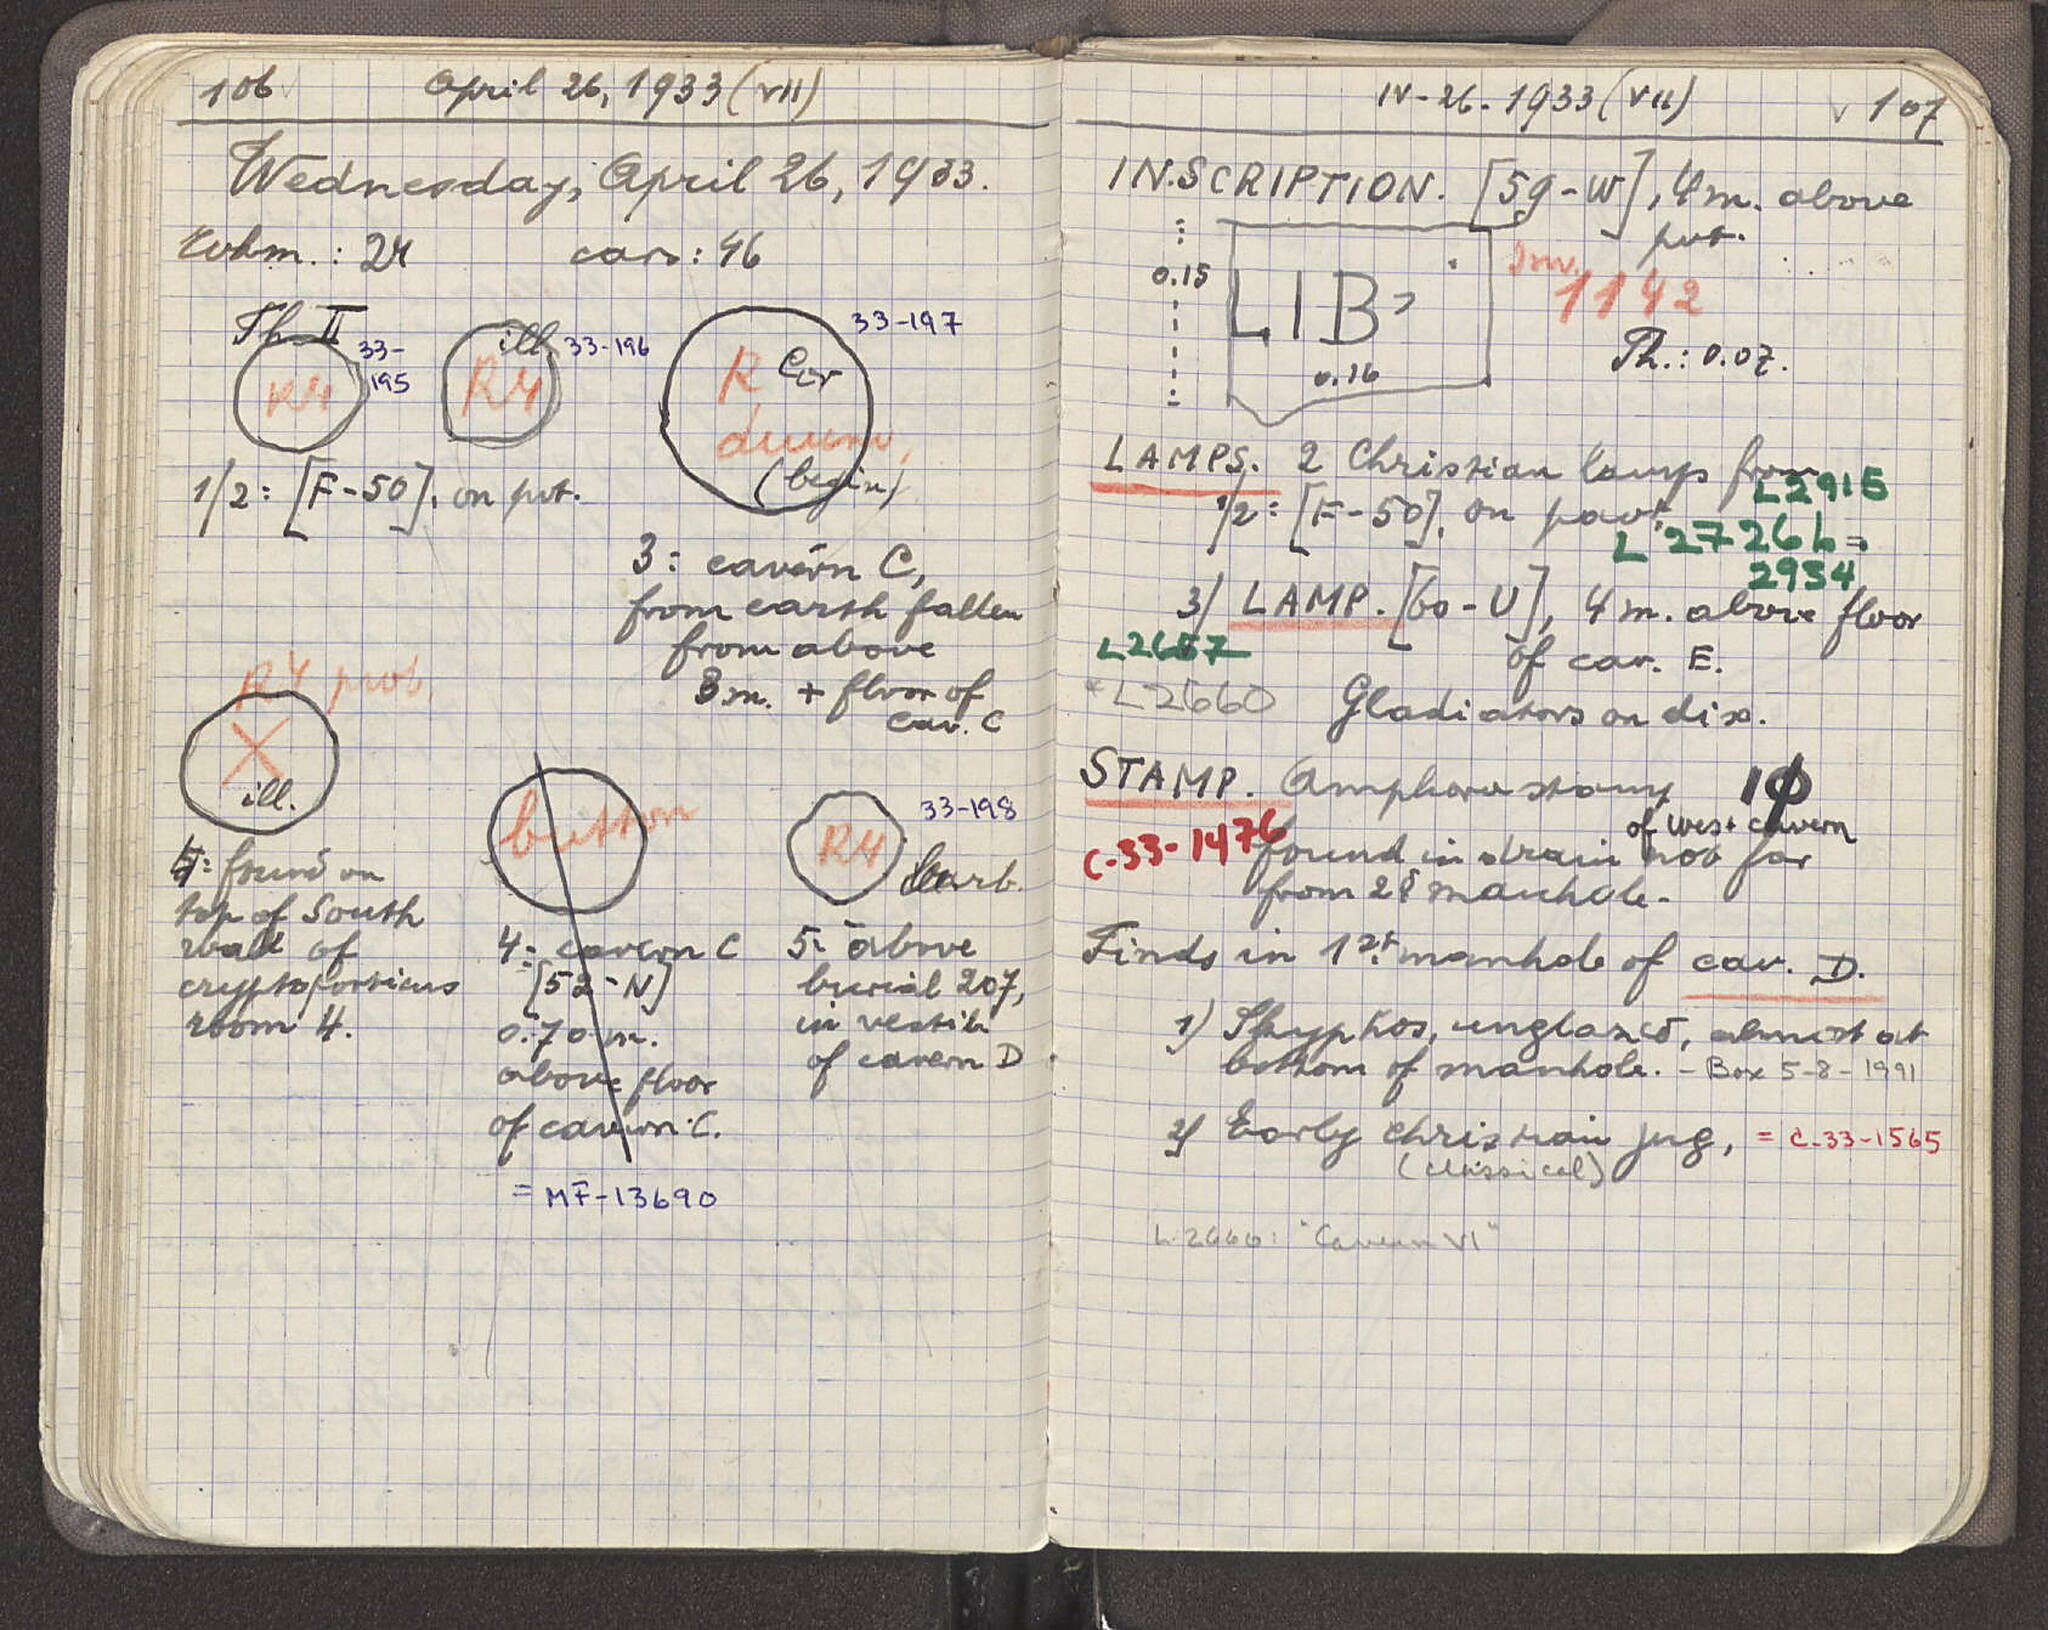 106 April 26, 1933 (VII)
Wednesday, April 26, 1933.
Wkm.: 24 cars: 46
Th II
R4
33-
195
ill.
R4
33-196
R
duum.
(begin)
33-197
1/2: [F-50], on pvt.
3: cavern C,
from earth fallen
from above
3 m. + floor of
cav. C
R4 prob.
X
ill.
button
R4
33-198
found on
top of South
wall of
cryptoporticus
room 4.
4: cavern C
[52-N]
0.70 m.
above floor
of cavern C.
= MF-13690
5: above
burial 207,
in vestib.
of cavern D
IV-26-1933 (VII) 107
INSCRIPTION. [59-W], 4 m. above
pvt.
0.15
LIB
0.16
Inv.
1142
Th.: 0.07.
LAMPS. 2 Christian lamps from
L2915
1/2: [F-50], on pavt.
L 2726b =
2934
3) LAMP. [60-U], 4 m. above floor
of cav. E.
L2657
L2660
Gladiators on dix.
STAMP. Amphora stamp ΙΦ
of West cavern
C-33-1476
found in drain not far
from 2d manhole.
Finds in 1st manhole of cav. D.
1) Skyphos, unglazed, almost at
bottom of manhole. - Box 5-8-1991
2) Early christian jug, = C-33-1565
(classical)
L 2660: "Cavern VI"